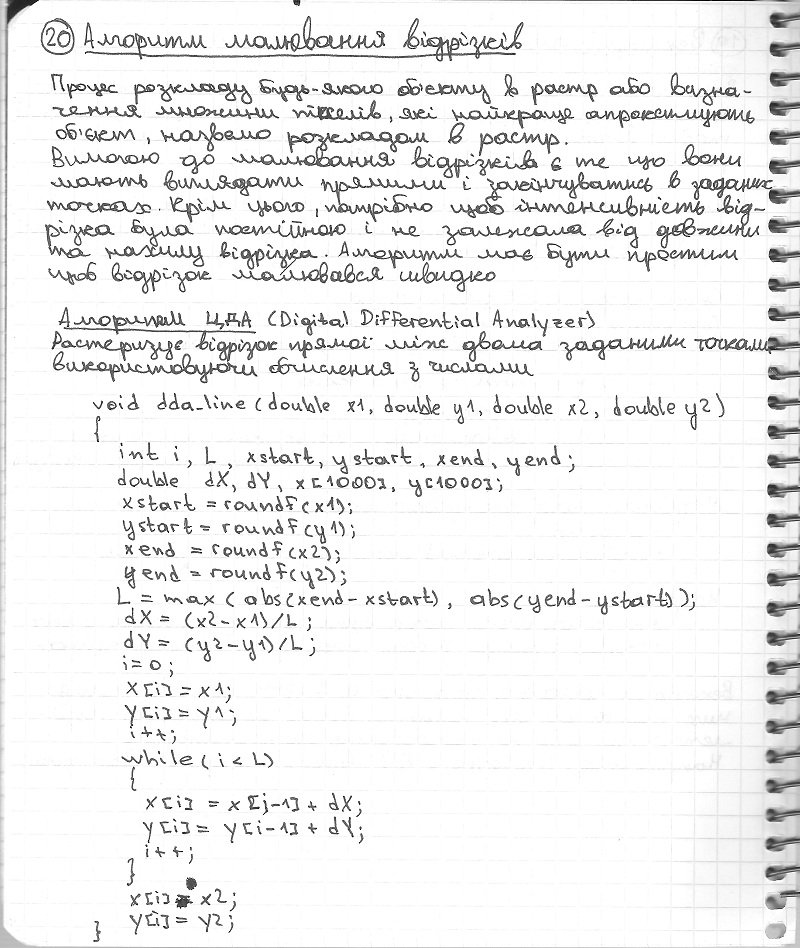 20 Алгоритм малювання відрізків
Процес розкладу будь-якого об'єкту в растр або визна-
чення множини пікселів, які найкраще апроксимують
об'єкт, назвемо розкладом в растр.
Вимогою до малювання відрізків є те що вони
мають виглядати прямими і закінчуватись в заданих
точках. Крім цього, потрібно щоб інтенсивність від-
різка була постійною і не залежала від довжини
та нахилу відрізка. Алгоритм має бути простим
щоб відрізок малювався швидко
Алгоритм ЦДА (Digital Differential Analyzer)
Растеризує відрізок прямої між двома заданими точками,
використовуючи обчислення з числами
void dda_line(double x1, double y1, double x2, double y2)
{
int i, L, xstart, ystart, xend, yend;
double dX, dY, x[1000], y[1000];
xstart = roundf(x1);
ystart = roundf(y1);
xend = roundf(x2);
yend = roundf(y2);
L = max(abs(xend-xstart), abs(yend-ystart));
dX = (x2-x1)/L;
dY = (y2-y1)/L;
i=0;
X[i]=x1;
Y[i]=y1;
i++;
while(i<L)
{
X[i] = x[j-1] + dX;
Y[i] = y[i-1] + dY;
i++;
}
X[i] = x2;
Y[i] = y2;
}